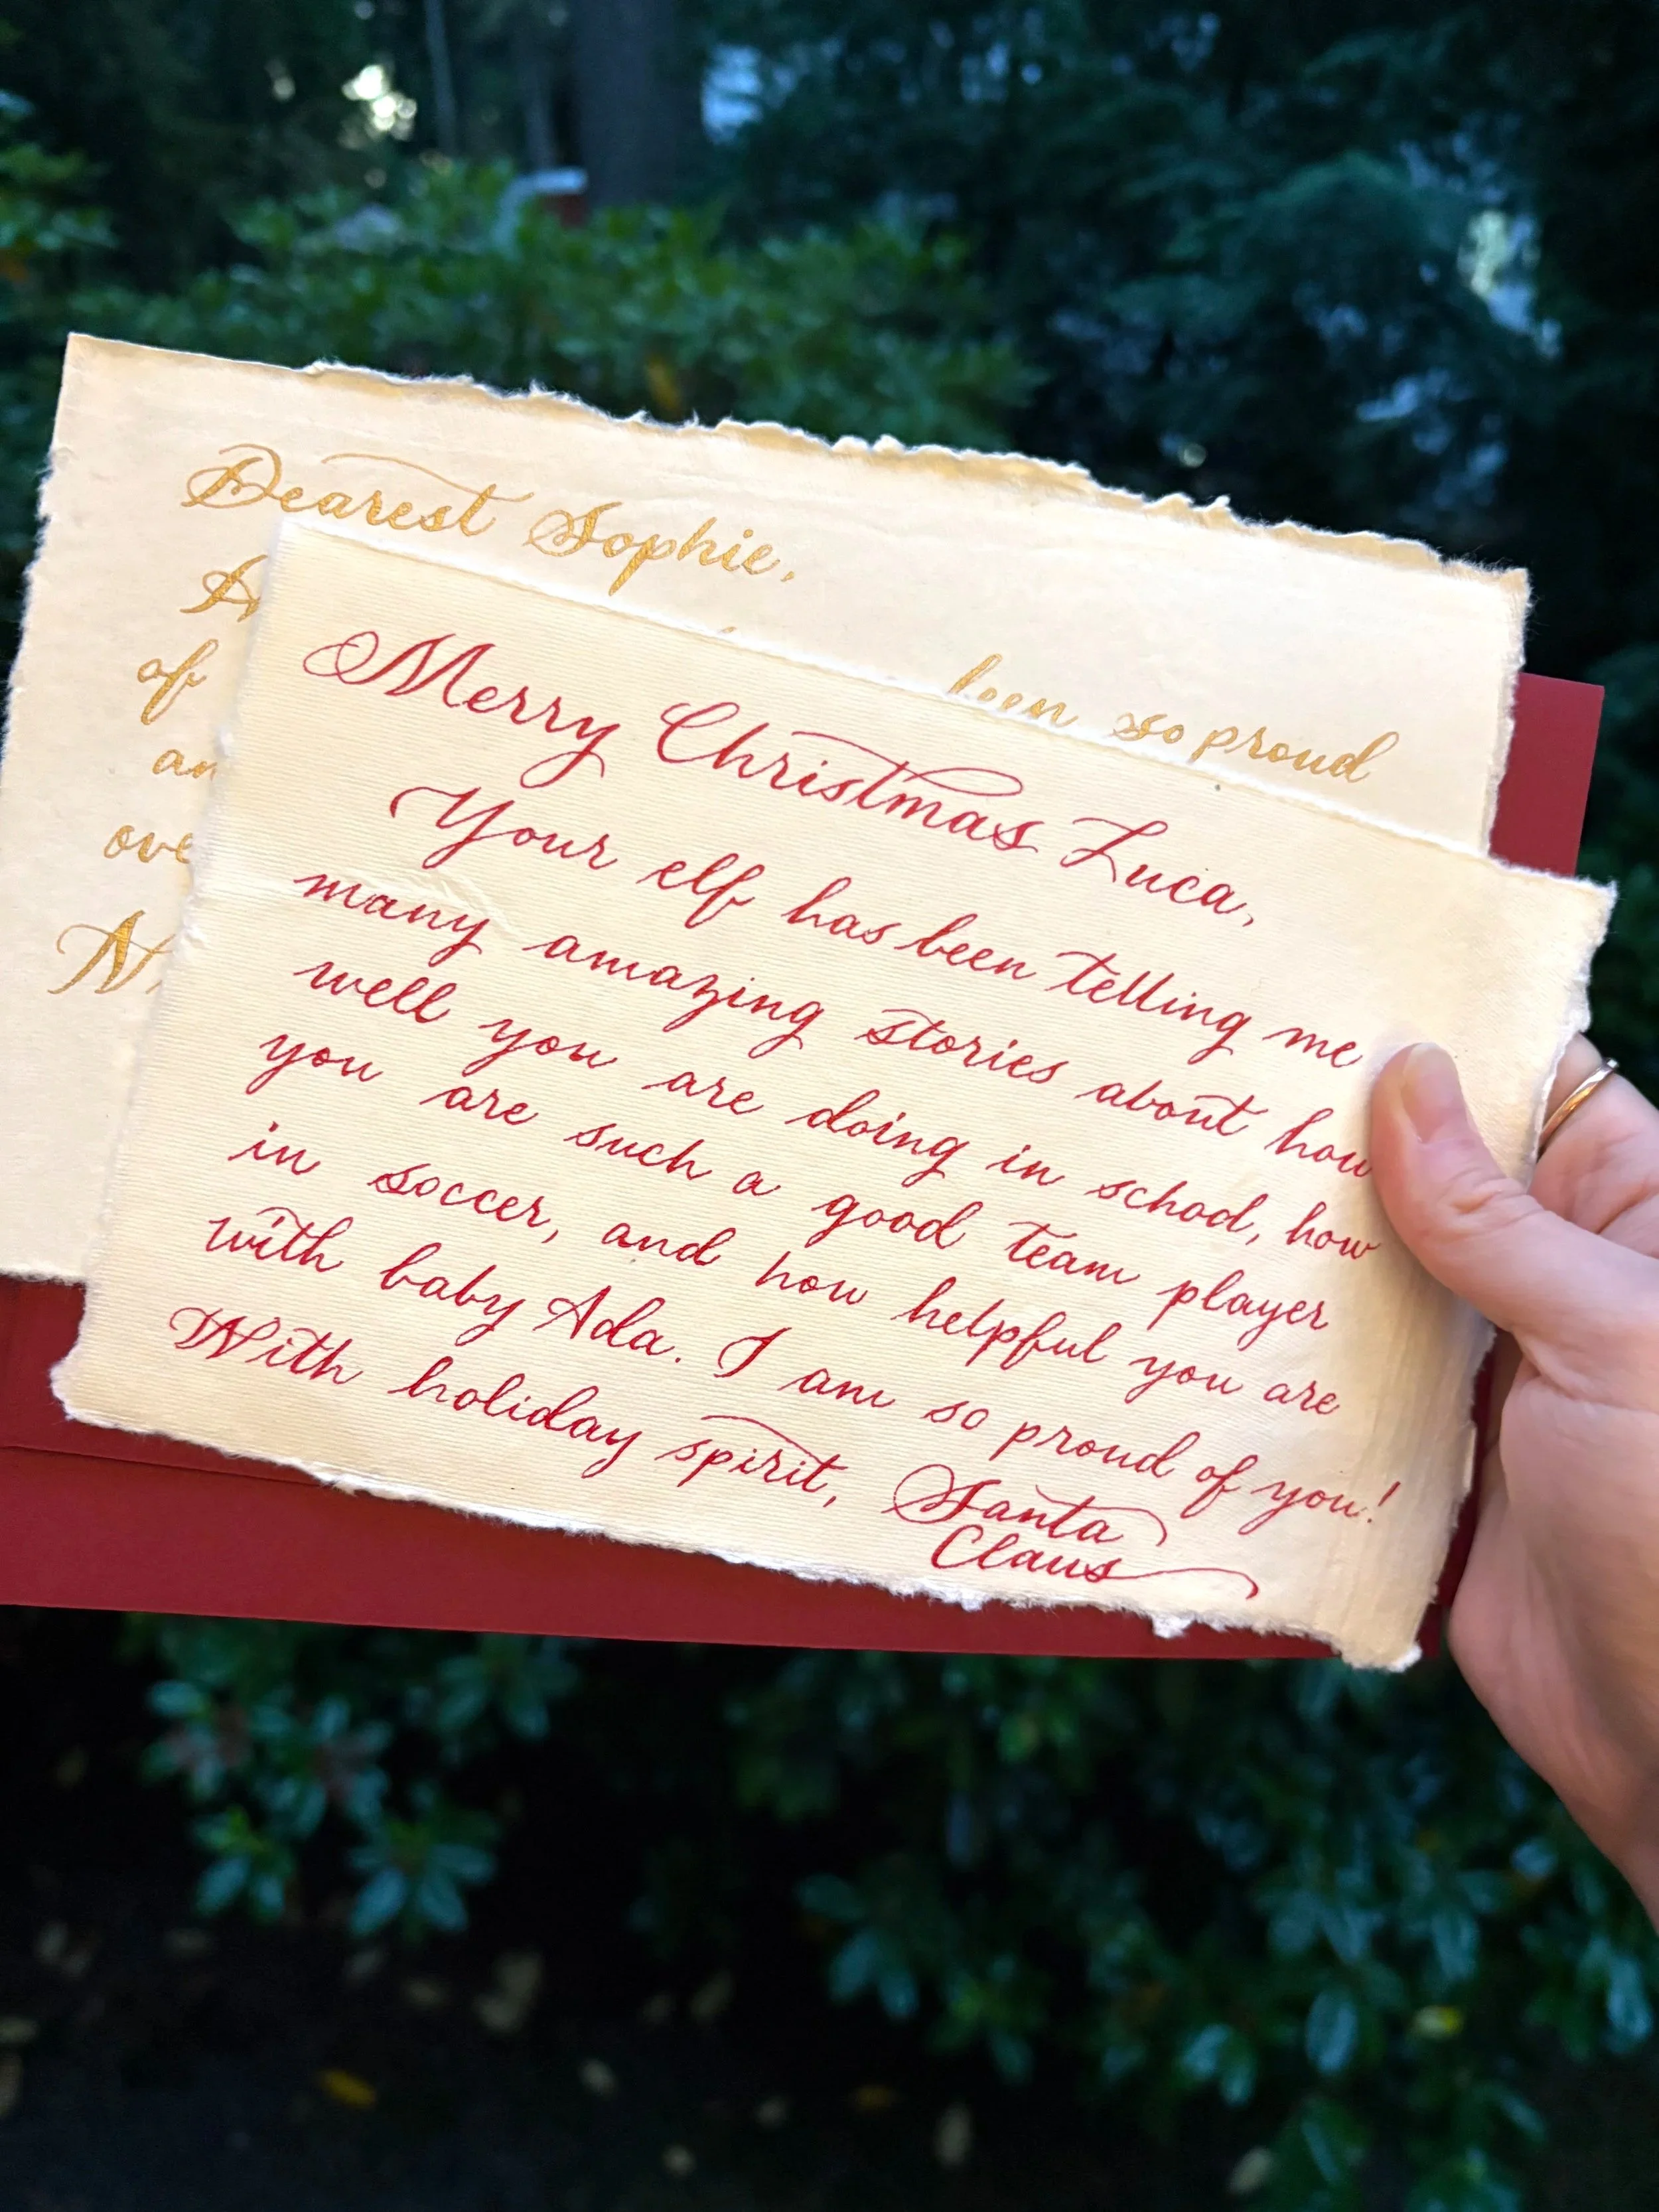 Dearest Sophie,
been so proud
of
Merry Christmas Luca,
Your elf has been telling me
many amazing stories about how
well you are doing in school, how
you are such a good team player
in soccer, and how helpful you are
with baby Ada. I am so proud of you!
With holiday spirit, Santa
Claus